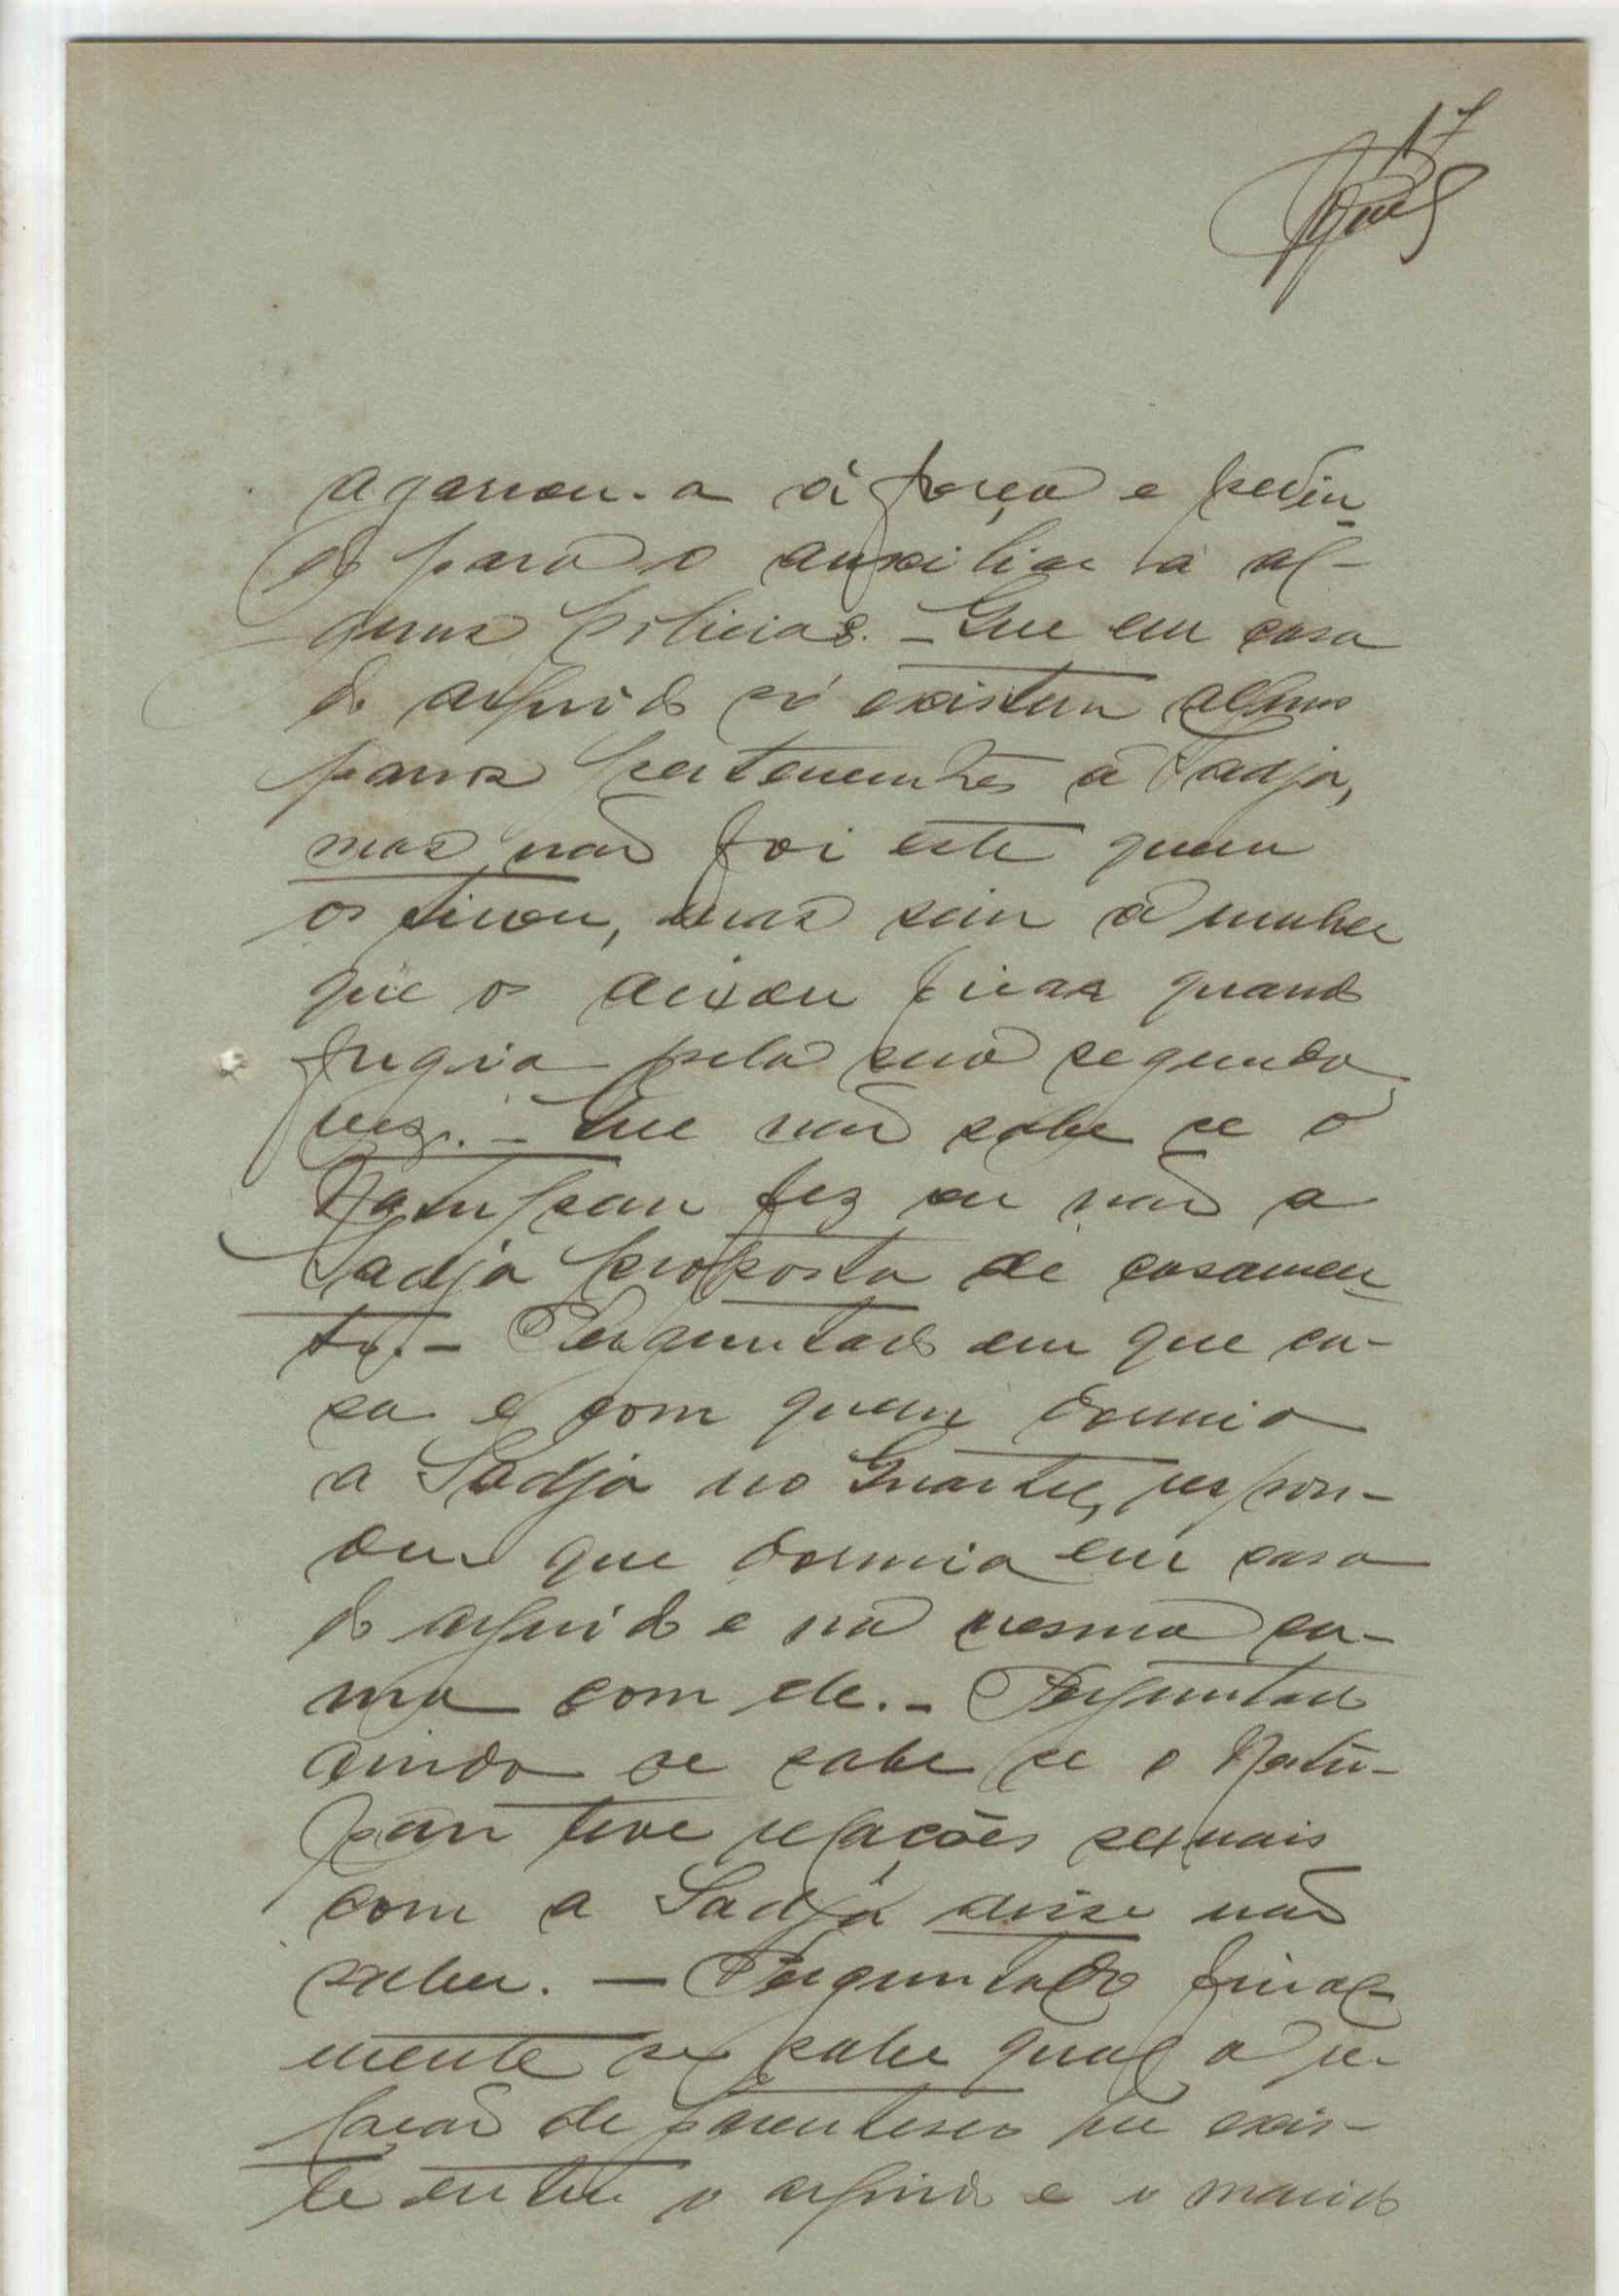 17
agarrou-a à força e pedin-
do para o auxiliar a al-
guns policias. - Que em casa
do arguido só existem alguns
panos pertencentes á Sadja,
mas não foi este quem
os tirou, mas sim a mulher
que os deixou ficar quando
fugiu pela sua segunda
vez. - Que não sabe se o
Natupan fez ou não a
Sadja proposta de casamen-
to. - Perguntado em que ca-
sa e com quem dormia
a Sadja no Quartel, respon-
deu que dormia em casa
do arguido e na mesma ca-
ma com ele. - Perguntado
ainda se sabe se o Natu-
pan teve relações sexuais
com a Sadja disse não
saber. - Perguntado final-
mente se sabe qual a re-
lação de parentesco que exis-
te entre o arguido e o marido